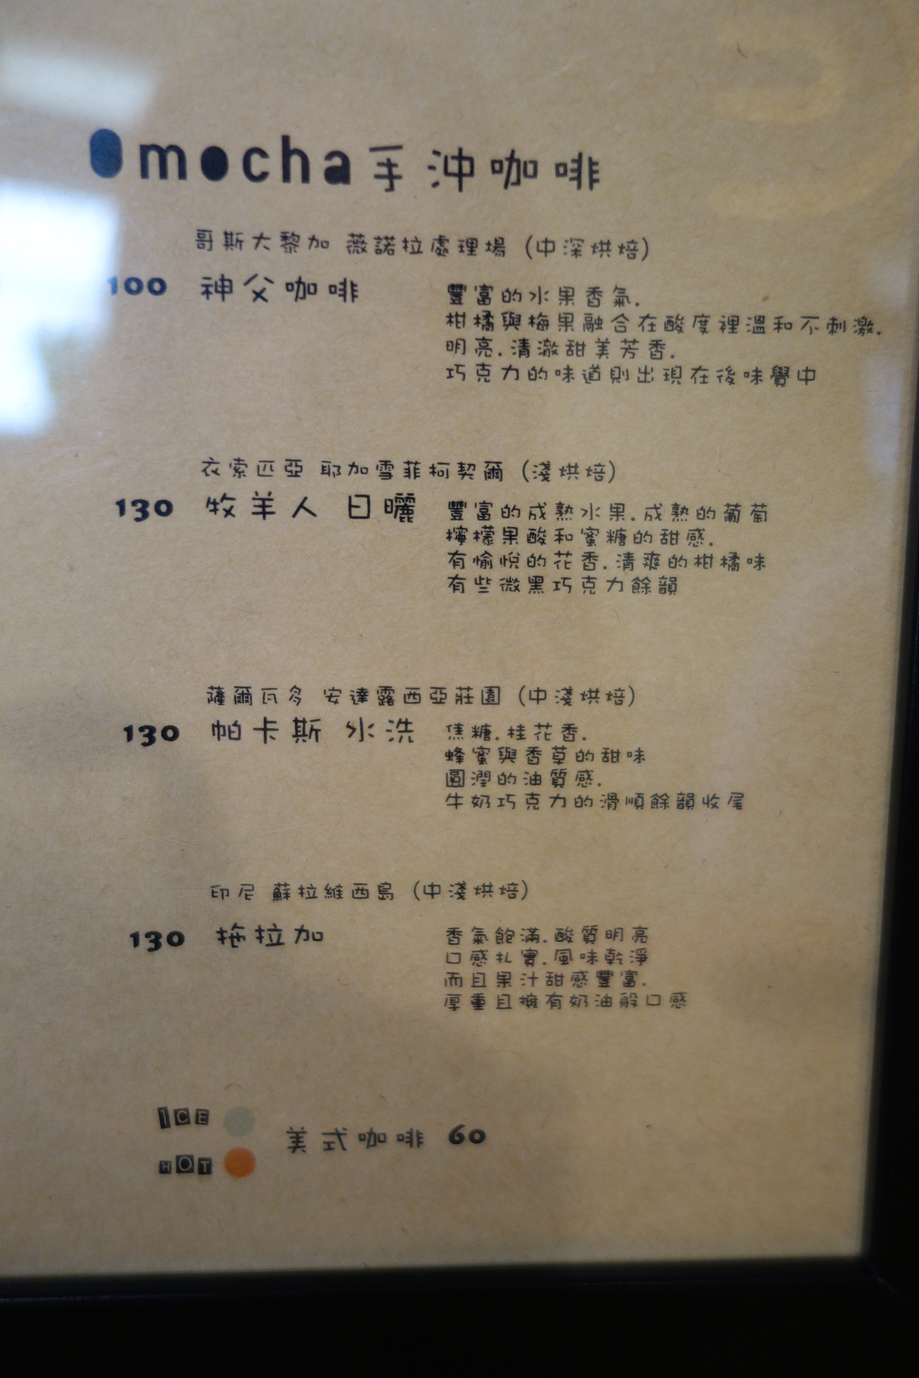 Omocha手沖咖啡
哥斯大黎加 薇諾拉處理場 (中深烘焙)
100 神父咖啡
豐富的水果香氣.
柑橘與梅果融合在酸度裡溫和不刺激.
明亮.清澈甜美芳香.
巧克力的味道則出現在後味覺中
衣索匹亞 耶加雪菲柯契爾 (淺烘焙)
130 牧羊人 日曬
豐富的成熟水果.成熟的葡萄
檸檬果酸和蜜糖的甜感.
有愉悅的花香.清爽的柑橘味
有些微黑巧克力餘韻
薩爾瓦多 安達露西亞莊園 (中淺烘焙)
130 帕卡斯 水洗
焦糖.桂花香.
蜂蜜與香草的甜味
圓潤的油質感.
牛奶巧克力的滑順餘韻收尾
印尼 蘇拉維西島 (中淺烘焙)
130 拖拉加
香氣飽滿.酸質明亮
口感扎實.風味乾淨
而且果汁甜感豐富.
厚重且擁有奶油般口感
ICE
HOT
美式咖啡 60